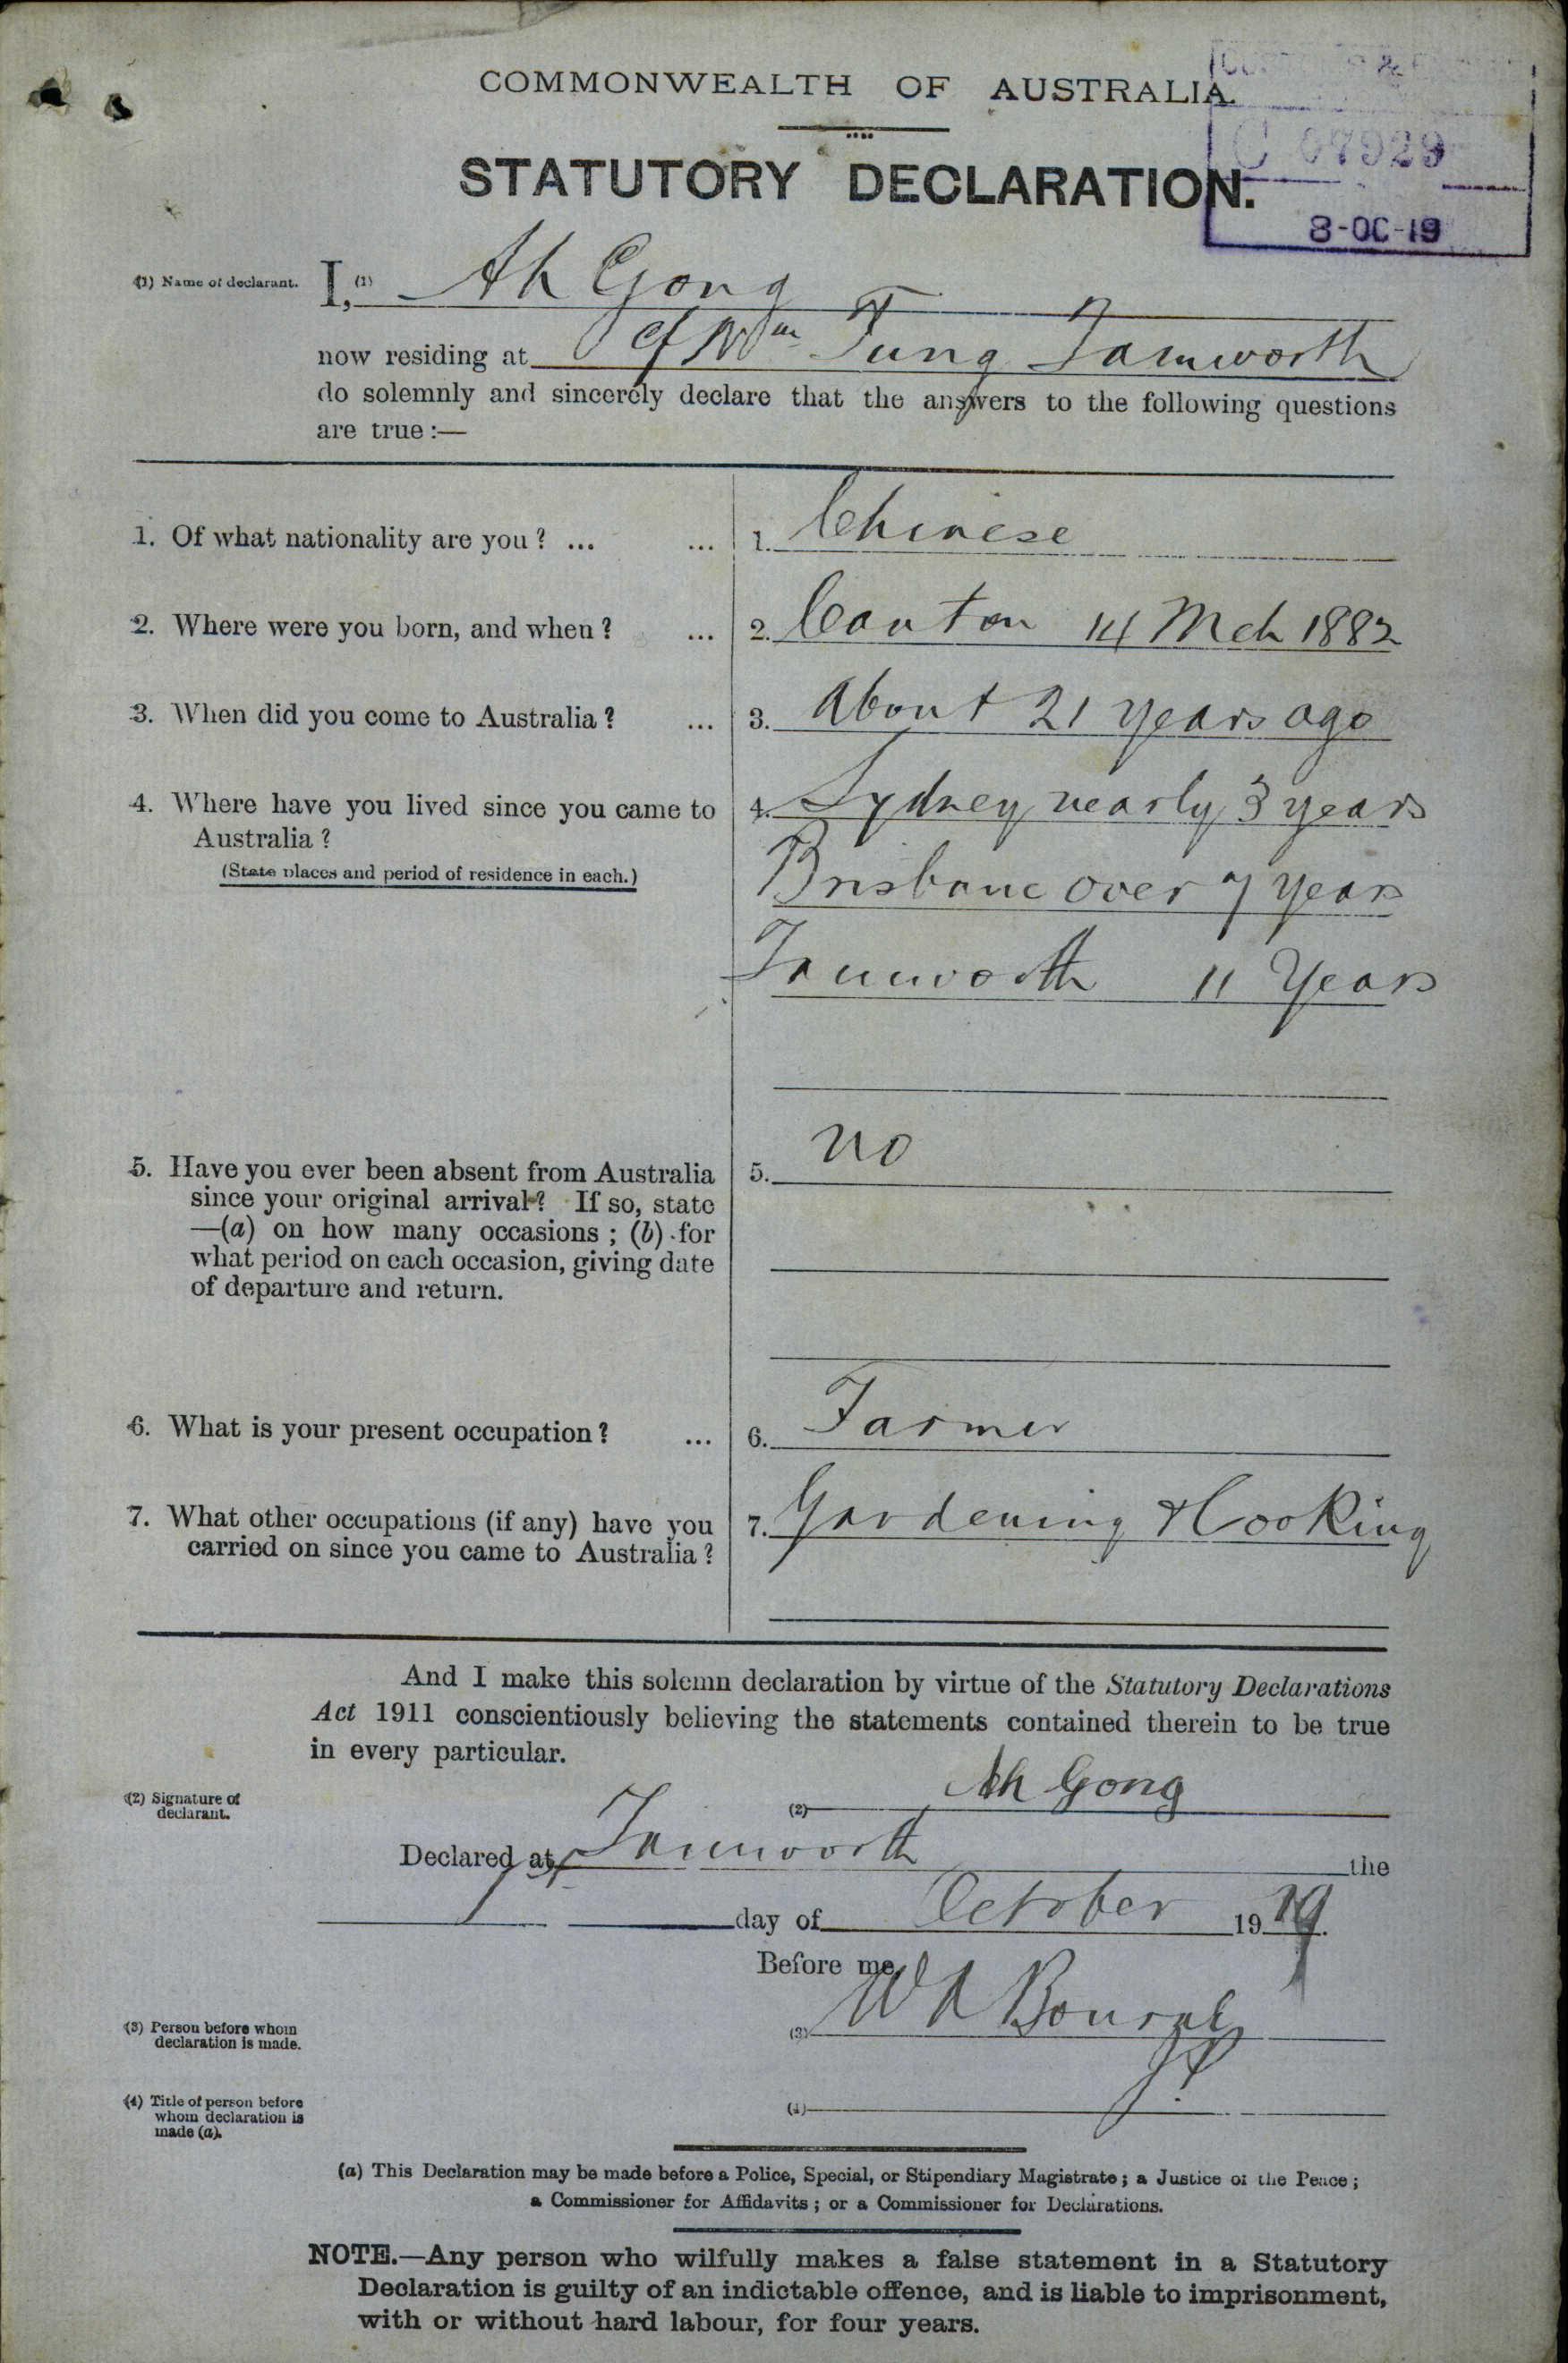 COMMONWEALTH OF AUSTRALIA.
C 07929
STATUTORY DECLARATION.
8-OC-19
(1) Name of declarant. I, (1) Ah Gong
now residing at c/ Wm Tung Tamworth
do solemnly and sincerely declare that the answers to the following questions
are true :—
1. Of what nationality are you ? ... ... 1. Chinese
2. Where were you born, and when ? ... 2. Canton 14 Mch 1882
3. When did you come to Australia ? ... 3. About 21 years ago
4. Where have you lived since you came to 4. Sydney nearly 3 years
Australia ?
(State places and period of residence in each.) Brisbane over 7 years
Tamworth 11 Years
5. Have you ever been absent from Australia 5. no
since your original arrival ? If so, state
—(a) on how many occasions ; (b) for
what period on each occasion, giving date
of departure and return.
6. What is your present occupation ? ... 6. Farmer
7. What other occupations (if any) have you 7. Gardening & Cooking
carried on since you came to Australia ?
And I make this solemn declaration by virtue of the Statutory Declarations
Act 1911 conscientiously believing the statements contained therein to be true
in every particular.
(2) Signature of (2) Ah Gong
declarant.
Declared at Tamworth the
1st day of October 1919.
Before me,
(3) Person before whom (3) W A
declaration is made.
(4) Title of person before (4) J.P.
whom declaration is
made (a).
(a) This Declaration may be made before a Police, Special, or Stipendiary Magistrate ; a Justice of the Peace ;
a Commissioner for Affidavits ; or a Commissioner for Declarations.
NOTE.—Any person who wilfully makes a false statement in a Statutory
Declaration is guilty of an indictable offence, and is liable to imprisonment,
with or without hard labour, for four years.